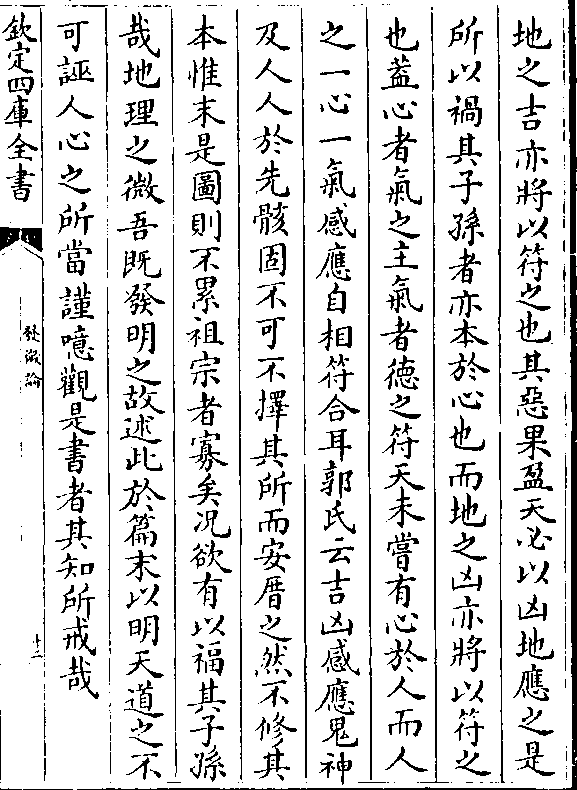 地之吉亦將以符之也其惡果盈天必以凶地應之是
所以禍其子孫者亦本於心也而地之凶亦將以符之
也葢心者氣之主氣者徳之符天未嘗有心於人而人
之一心一氣感應自相符合耳郭氏云吉凶感應鬼神
及人人於先骸固不可不擇其所而安厝之然不修其
本惟末是圖則不累祖宗者寡矣况欲有以福其子孫
哉地理之微吾既發明之故述此於篇末以明天道之不
可誣人心之所當謹噫觀是書者其知所戒哉
欽定四庫全書
發微論
十二